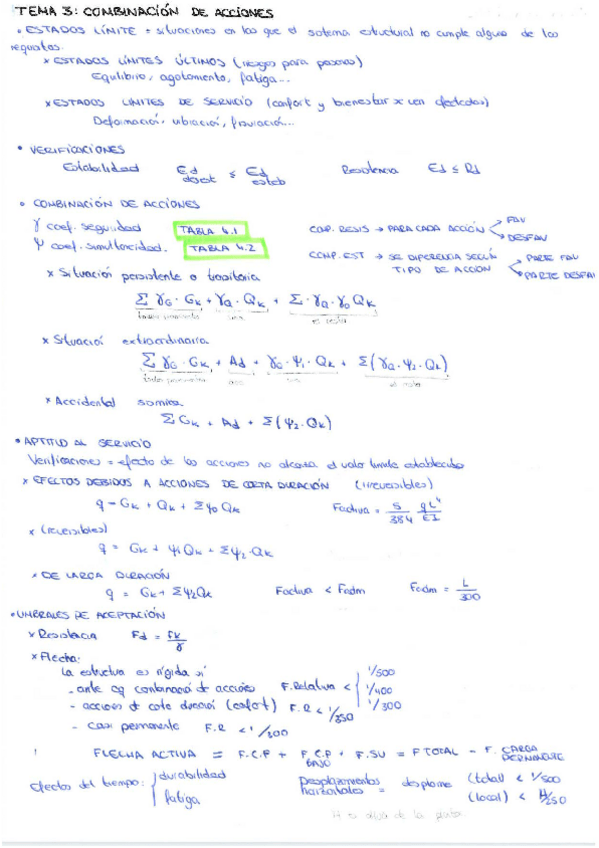 TEMA 3: COMBINACIÓN DE ACCIONES
• ESTADOS LÍMITE = situaciones en las que el sistema estructural no cumple alguno de los
requisitos.
× ESTADOS LÍMITES ÚLTIMOS (riesgos para personas)
Equilibrio, agotamiento, fatiga...
× ESTADOS LÍMITES DE SERVICIO (confort y bienestar x ven afectados)
Deformación, vibración, fisuración...
• VERIFICACIONES
Estabilidad Ed desest ≤ Ed estab Resistencia Ed ≤ Rd
• COMBINACIÓN DE ACCIONES
γ coef. seguridad TABLA 4.1 COMP. RESIS → PARA CADA ACCIÓN FAV DESFAV
ψ coef. simultaneidad. TABLA 4.2 COMP. EST → SE DIFERENCIA SEGÚN TIPO DE ACCIÓN PARTE FAV PARTE DESFAV
× Situación persistente o transitoria
Σ γG · Gk + γQ · Qk + Σ · γQ · γ0 Qk
el resto
× Situació extraordinaria
Σ γG · Gk + Ad + γQ · ψ1 · Qk + Σ(γQ · ψ2 · Qk)
el resto
× Accidental sísmica
ΣGk + Ad + Σ(ψ2 · Qk)
• APTITUD AL SERVICIO
Verificaciones = efecto de las acciones no alcanza el valor límite establecido
× EFECTOS DEBIDOS A ACCIONES DE CORTA DURACIÓN (irreversibles)
q = Gk + Qk + Σψ0 Qk Factiva = 5/384 qL⁴/EI
× (reversibles)
q = Gk + ψ1Qk + Σψ2 · Qk
× DE LARGA DURACIÓN
q = Gk + Σψ2Qk Factiva < Fadm Fadm = L/300
• UMBRALES DE ACEPTACIÓN
× Resistencia Fd = Fk/γ
× Flecha:
La estructura es rígida si
- ante cq combinació d acciones F. Relativa < 1/500 1/400 1/300
- acciones d corta duració (confort) F.R < 1/350
- casi permanente F.R < 1/300
FLECHA ACTIVA = F.C.P + F.C.P BAJO + F.SU = F TOTAL - F. CARGA PERMANENTE
efectos del tiempo: durabilidad fatiga Desplazamientos horizontales = desplome (total) < 1/500 (local) < H/250